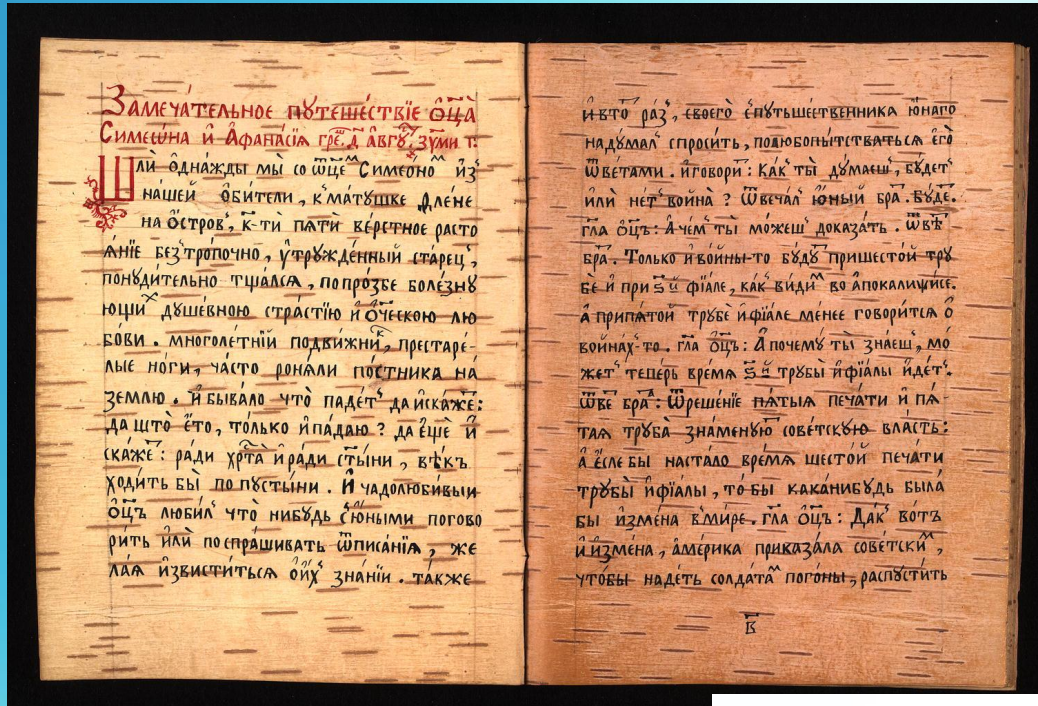 Замеча́тельное пꙋтеше́ствїе ѻ҆ц҃а̀
Симеѡ́на и҆ А҆фана́сїѧ гре҃ш. д҃. а҆вгꙋ҃. зꙋми т:
Шлѝ ѻ҆дна́жды мы̀ со ѿцемъ Симеономъ и҆з̾
на́шей ѻ҆би́тели, к̾ ма́тꙋшке Е҆ле́не
на ѻ҆́стров̾, к҃-ти пѧтѝ ве́рстное расто
ѧ́нїе без̾тро́почно, ᲂу҆трꙋжде́нный ста́рец̾,
понꙋди́тельно тщалсѧ, попро́збе боле́знꙋ
ющихъ дꙋше́вною стра́стїю и҆ ѻ҆те́ческою лю
бо́ви. многоле́тнїй подви́жникъ, престаре́-
лые но́ги, ча́сто роня́ли по́стника на́
зе́млю. и҆ быва́ло что̀ паде́т̾ да и҆ска́же:
да што̀ е҆́то, то́лько и҆ па́даю? да е҆щѐ и҆
ска́же: ра́ди хр҃та̀ и҆ ра́ди ст҃ы́ни, вѣ́къ
ходи́ть бы̀ по пꙋсты́ни. И҆ чадолюби́выи
ѻ҆ц҃ъ люби́л̾ что̀ нибꙋ́дь с̾ ю҆́ными погово
ри́ть и҆лѝ поспра́шивать ѿ писа́нїѧ, же
ла́ѧ и҆звисти́ться ѻ҆ и҆́х̾ зна́нїи. та́кже
и҆ в то ра́з̾, своего̀ спꙋтьше́ственника ю҆́наго
надꙋ́мал̾ спроси́ть, полюбопы́тствоваться е҆го̀
ѿве́тами. и҆ говори: ка́к̾ ты̀ дꙋ́маеш̾, бꙋ́дет̾
и҆лѝ не́т̾ война̀? ѿвеча́л̾ ю҆́ный бра. бꙋ́де.
гл҃а ѻ҆ц҃ъ: А҆ че́м̾ ты̀ мо́жеш̾ доказа́ть. ѿвѣ
бра. То́лько и҆ во́йны-то бꙋ́дꙋ при шесто́й трꙋ
бе́ и҆ при ѕ҃й фїа́ле, ка́к̾ ви́димъ во а҆покали́псисе.
а҆ при пѧ́той трꙋбе́ и҆ фїа́ле ме́нее говори́тся ѻ҆
война́х̾-то. гл҃а ѻ҆ц҃ъ: А҆ почемꙋ̀ ты̀ зна́еш̾, мо́
жет̾ тепе́рь вре́мя ѕ҃й трꙋбы̀ и҆ фїа́лы и҆де́т̾.
ѿве бра: Ѿреше́нїе пѧ́тыѧ печа́ти и҆ пѧ́-
тая трꙋба̀ зна́менꙋю сове́тскꙋю вла́сть:
а҆ е҆́сле бы наста́ло вре́мя шесто́й печа́ти
трꙋбы̀ и҆ фїа́лы, то́ бы кака́нибꙋдь была̀
бы и҆зме́на в̾ ми́ре. гл҃а ѻ҆ц҃ъ: Да́к̾ вотъ
и҆ и҆зме́на, а҆ме́рика приказа́ла сове́тскимъ,
что́бы наде́ть солда́тамъ пого́ны, распꙋсти́ть
в҃